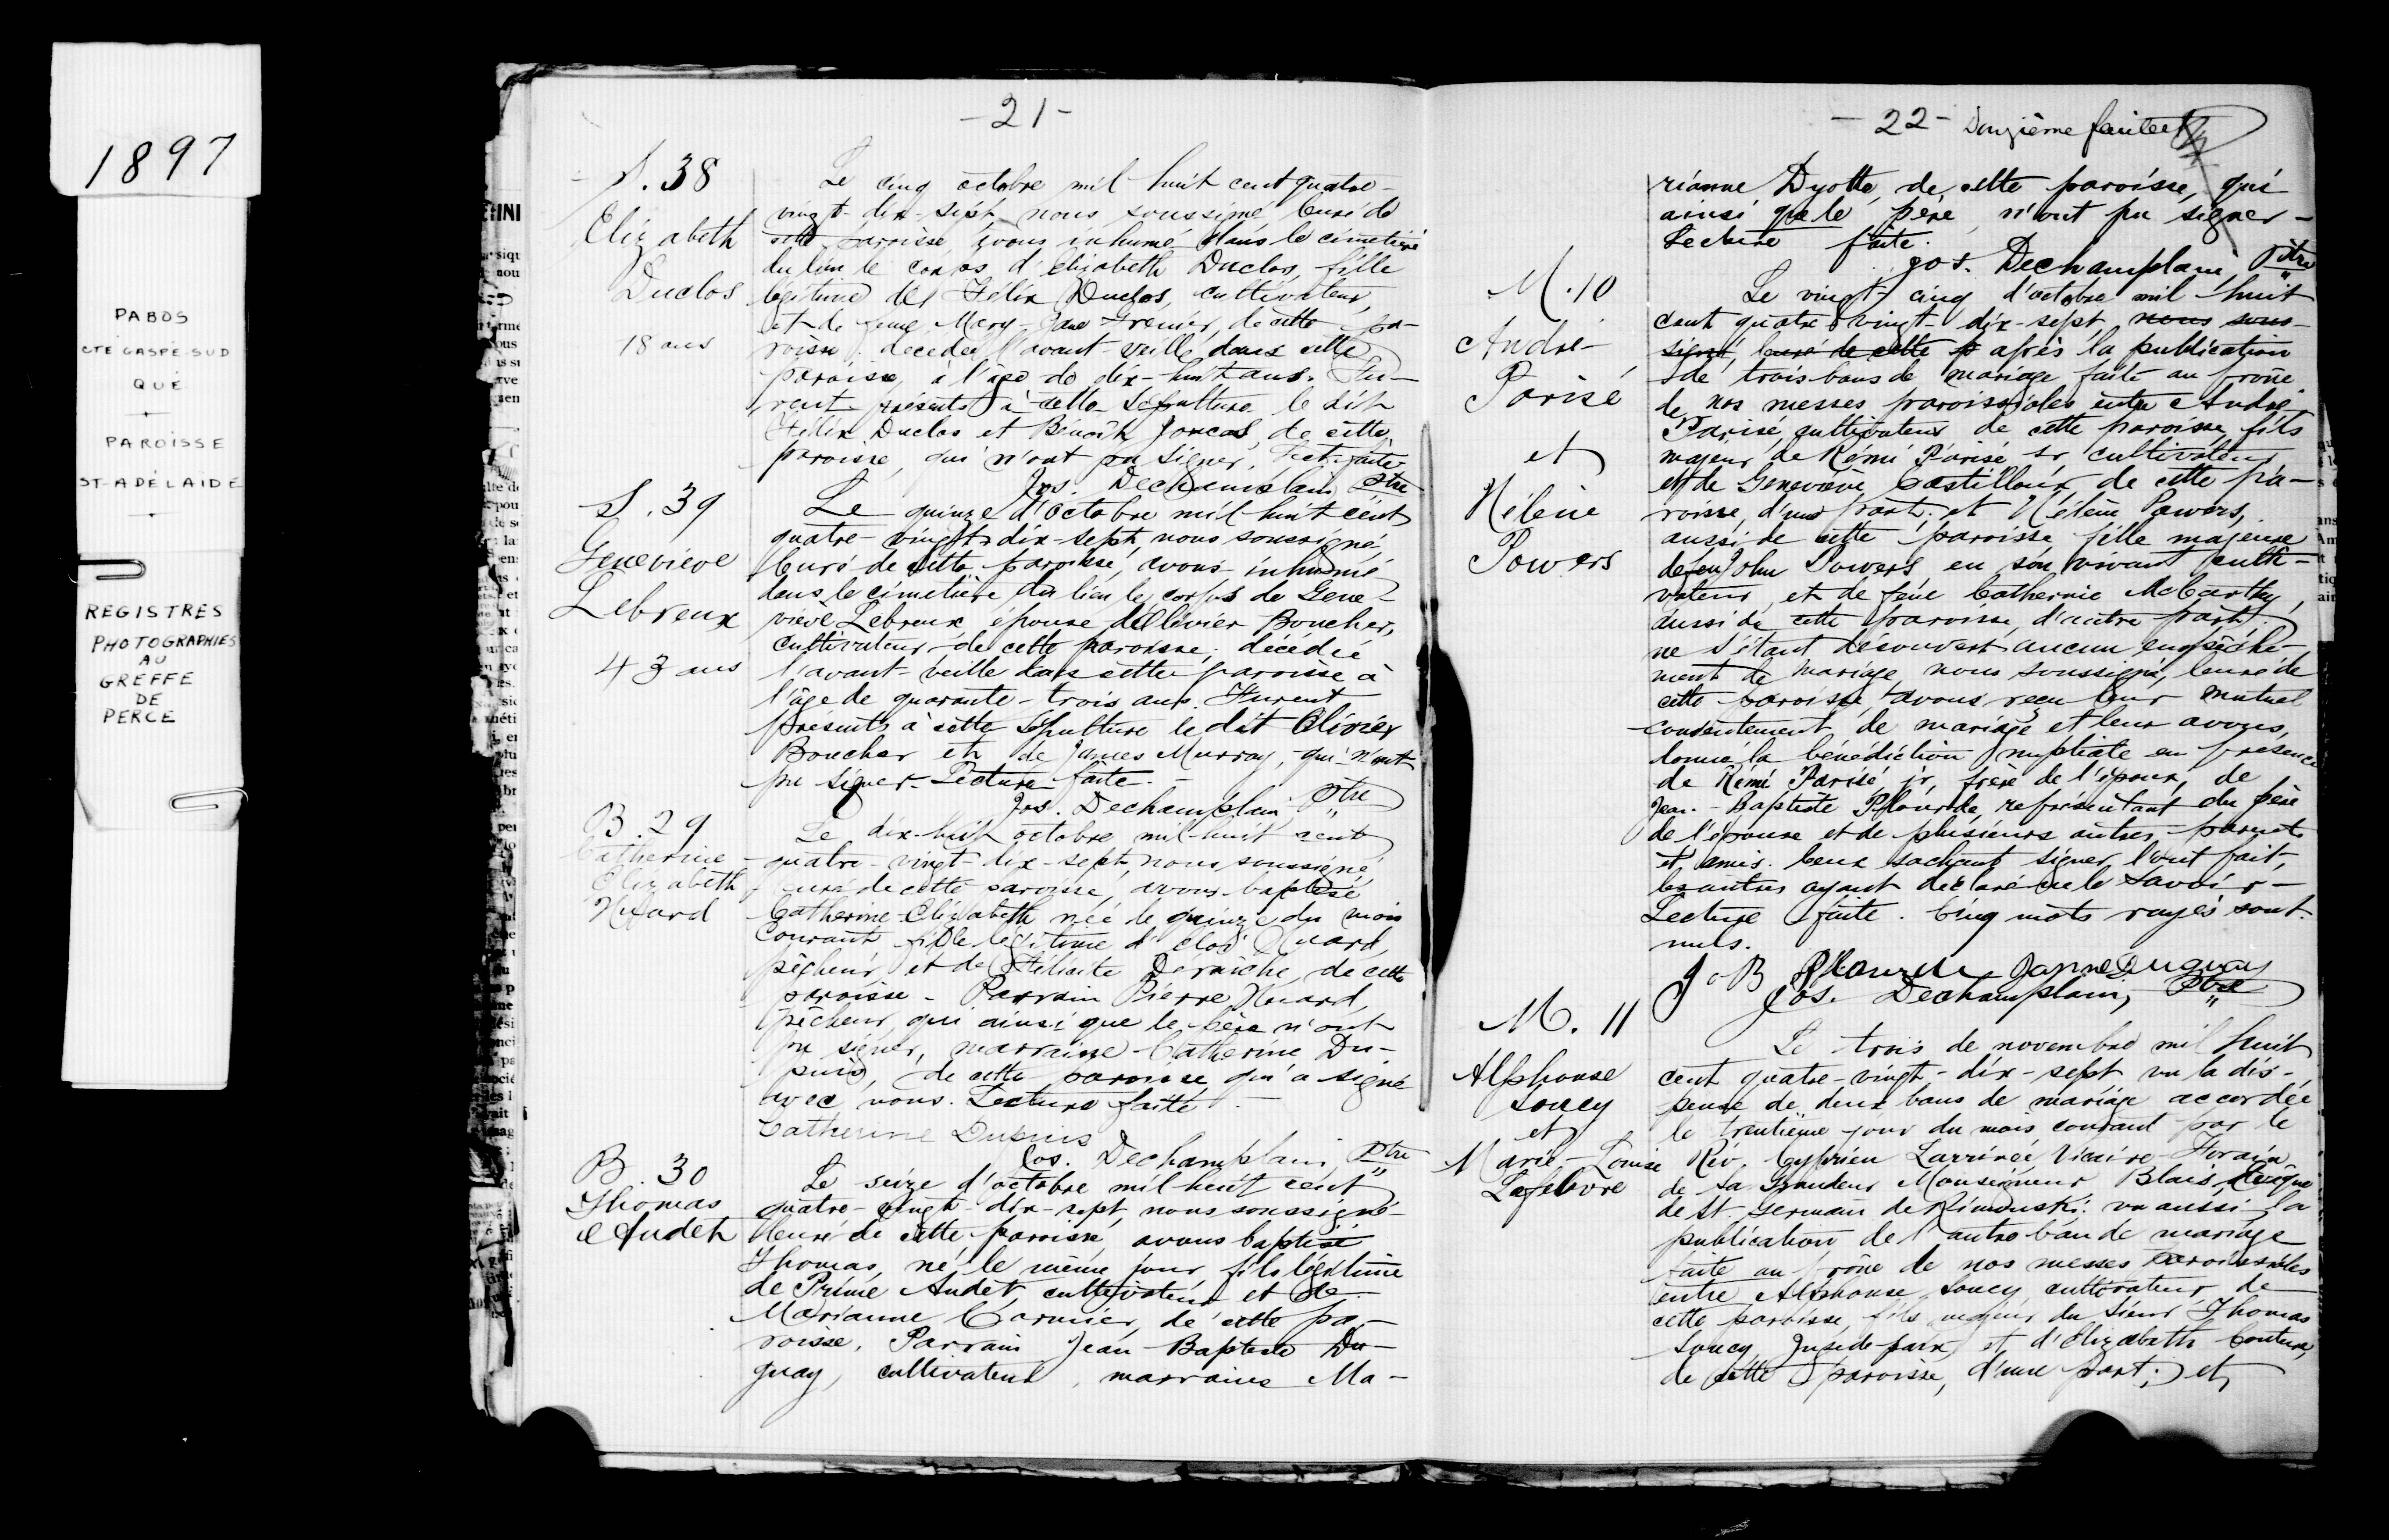 1897
PABOS
CTÉ GASPÉ-SUD
QUÉ
PAROISSE
ST-ADÉLAIDE
REGISTRES
PHOTOGRAPHIÉS
AU
GREFFE
DE
PERCÉ
-21-
S. 38
Elizabeth
Duclos
18 ans
Le cinq octobre mil huit cent quatre-
vingt-dix-sept nous soussigné Curé de
cette paroisse avons inhumé dans le cimetière
du lieu le corps d'Elizabeth Duclos, fille
légitime de Félix Duclos, cultivateur,
et de feue Mary-Jane Grenier, de cette pa-
roisse, décédée l'avant-veille dans cette
paroisse, à l'âge de dix-huit ans. Fu-
rent présents à cette sépulture le dit
Félix Duclos et Benoît Joncas, de cette
paroisse, qui n'ont pu signer. Lect. faite
Jos. Dechamplain Ptre
S. 39
Geneviève
Lebreux
43 ans
Le quinze d'octobre mil huit cent
quatre-vingt-dix-sept, nous soussigné,
Curé de cette paroisse, avons inhumé
dans le cimetière du lieu le corps de Gene-
viève Lebreux épouse d'Olivier Boucher,
cultivateur de cette paroisse, décédée
l'avant-veille dans cette paroisse à
l'âge de quarante-trois ans. Furent
présents à cette sépulture le dit Olivier
Boucher et de James Murray, qui n'ont
pu signer. Lecture faite.-
Jos. Dechamplain Ptre
B. 29
Catherine
Elizabeth
Huard
Le dix-huit octobre mil-huit cent
quatre-vingt-dix-sept, nous soussigné,
Curé de cette paroisse, avons baptisé
Catherine-Elizabeth née le quinze du mois
courant fille légitime d'Eloi Huard,
pêcheur et de Félicité Déraiche, de cette
paroisse - Parrain Pierre Huard,
pêcheur, qui ainsi que le père n'ont
pu signer, marraine - Catherine Du-
puis, de cette paroisse qui a signé
avec nous. Lecture faite.-
Catherine Dupuis
Jos. Dechamplain Ptre
B. 30
Thomas
Audet
Le seize d'octobre mil huit cent
quatre-vingt-dix-sept, nous soussigné
Curé de cette paroisse avons baptisé
Thomas, né le même jour fils légitime
de Prime Audet, cultivateur et de
Marianne Cormier, de cette pa-
roisse. Parrain Jean-Baptiste Du-
guay, cultivateur, marraine Ma-
-22- Douzième feuillet
rianne Dyotte, de cette paroisse, qui
ainsi que le père, n'ont pu signer -
Lecture faite.
Jos. Dechamplain, Ptre
M. 10
André
Parisé
et
Hélène
Powers
Le vingt-cinq d'octobre mil huit
cent quatre vingt-dix-sept nous sous-
signé, curé de cette p après la publication
de trois bans de mariage faite au prône
de nos messes paroissiales entre André
Parisé cultivateur de cette paroisse, fils
majeur de Rémi Parisé sr, cultivateur
et de Geneviève Castilloux de cette pa-
roisse, d'une part; et Hélène Powers,
aussi de cette paroisse fille majeure
de feu John Powers en son vivant culti-
vateur, et de feue Catherine McCarthy,
aussi de cette paroisse, d'autre part;
ne s'étant découvert aucun empêche-
ment de mariage, nous soussigné, Curé de
cette paroisse, avons reçu leur mutuel
consentement de mariage et leur avons,
donné la bénédiction nuptiale en présence
de Rémi Parisé, jr, frère de l'époux, de
Jean-Baptiste Plourde, représentant du père
de l'épouse et de plusieurs autres parents
et amis. Ceux sachant signer, l'ont fait,
les autres ayant déclaré ne le savoir -
Lecture faite. Cinq mots rayés sont
nuls.
J. B Plourde
Jos. Dechamplain, Ptre
M. 11
Alphonse
Soucy
et
Marie-Louise
Lefebvre
Le trois de novembre mil huit
cent quatre-vingt-dix-sept vu la dis-
pense de deux bans de mariage accordée
le trentième jour du mois courant par le
Rév. Cyprien Larrivée Vicaire-Forain
de Sa Grandeur Monseigneur Blais, Evêque
de St. Germain de Rimouski; vu aussi la
publication de l'autre ban de mariage
faite au prône de nos messes paroissiales
entre Alphonse Soucy cultivateur de
cette paroisse, fils majeur du Sieur Thomas
Soucy Juge de paix, et d'Elizabeth Couture,
de cette paroisse, d'une part; et